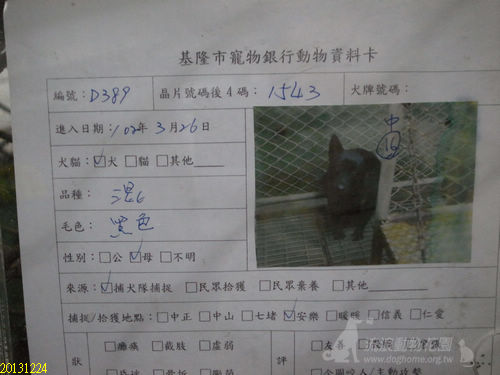 基隆市寵物銀行動物資料卡
編號：D389 晶片號碼後4碼：1543 犬牌號碼：
進入日期：102年3月26日
犬貓：☑犬 □貓 □其他
中
品種：混
毛色：黑色
性別：□公 ☑母 □不明
來源：☑捕犬隊捕捉 □民眾拾獲 □民眾棄養 □其他
捕捉/拾獲地點：□中正 □中山 □七堵 ☑安樂 □暖暖 □信義 □仁愛
狀 □皮膚病 □截肢 □虛弱 評 □友善
www.doghome.org.tw
20131224